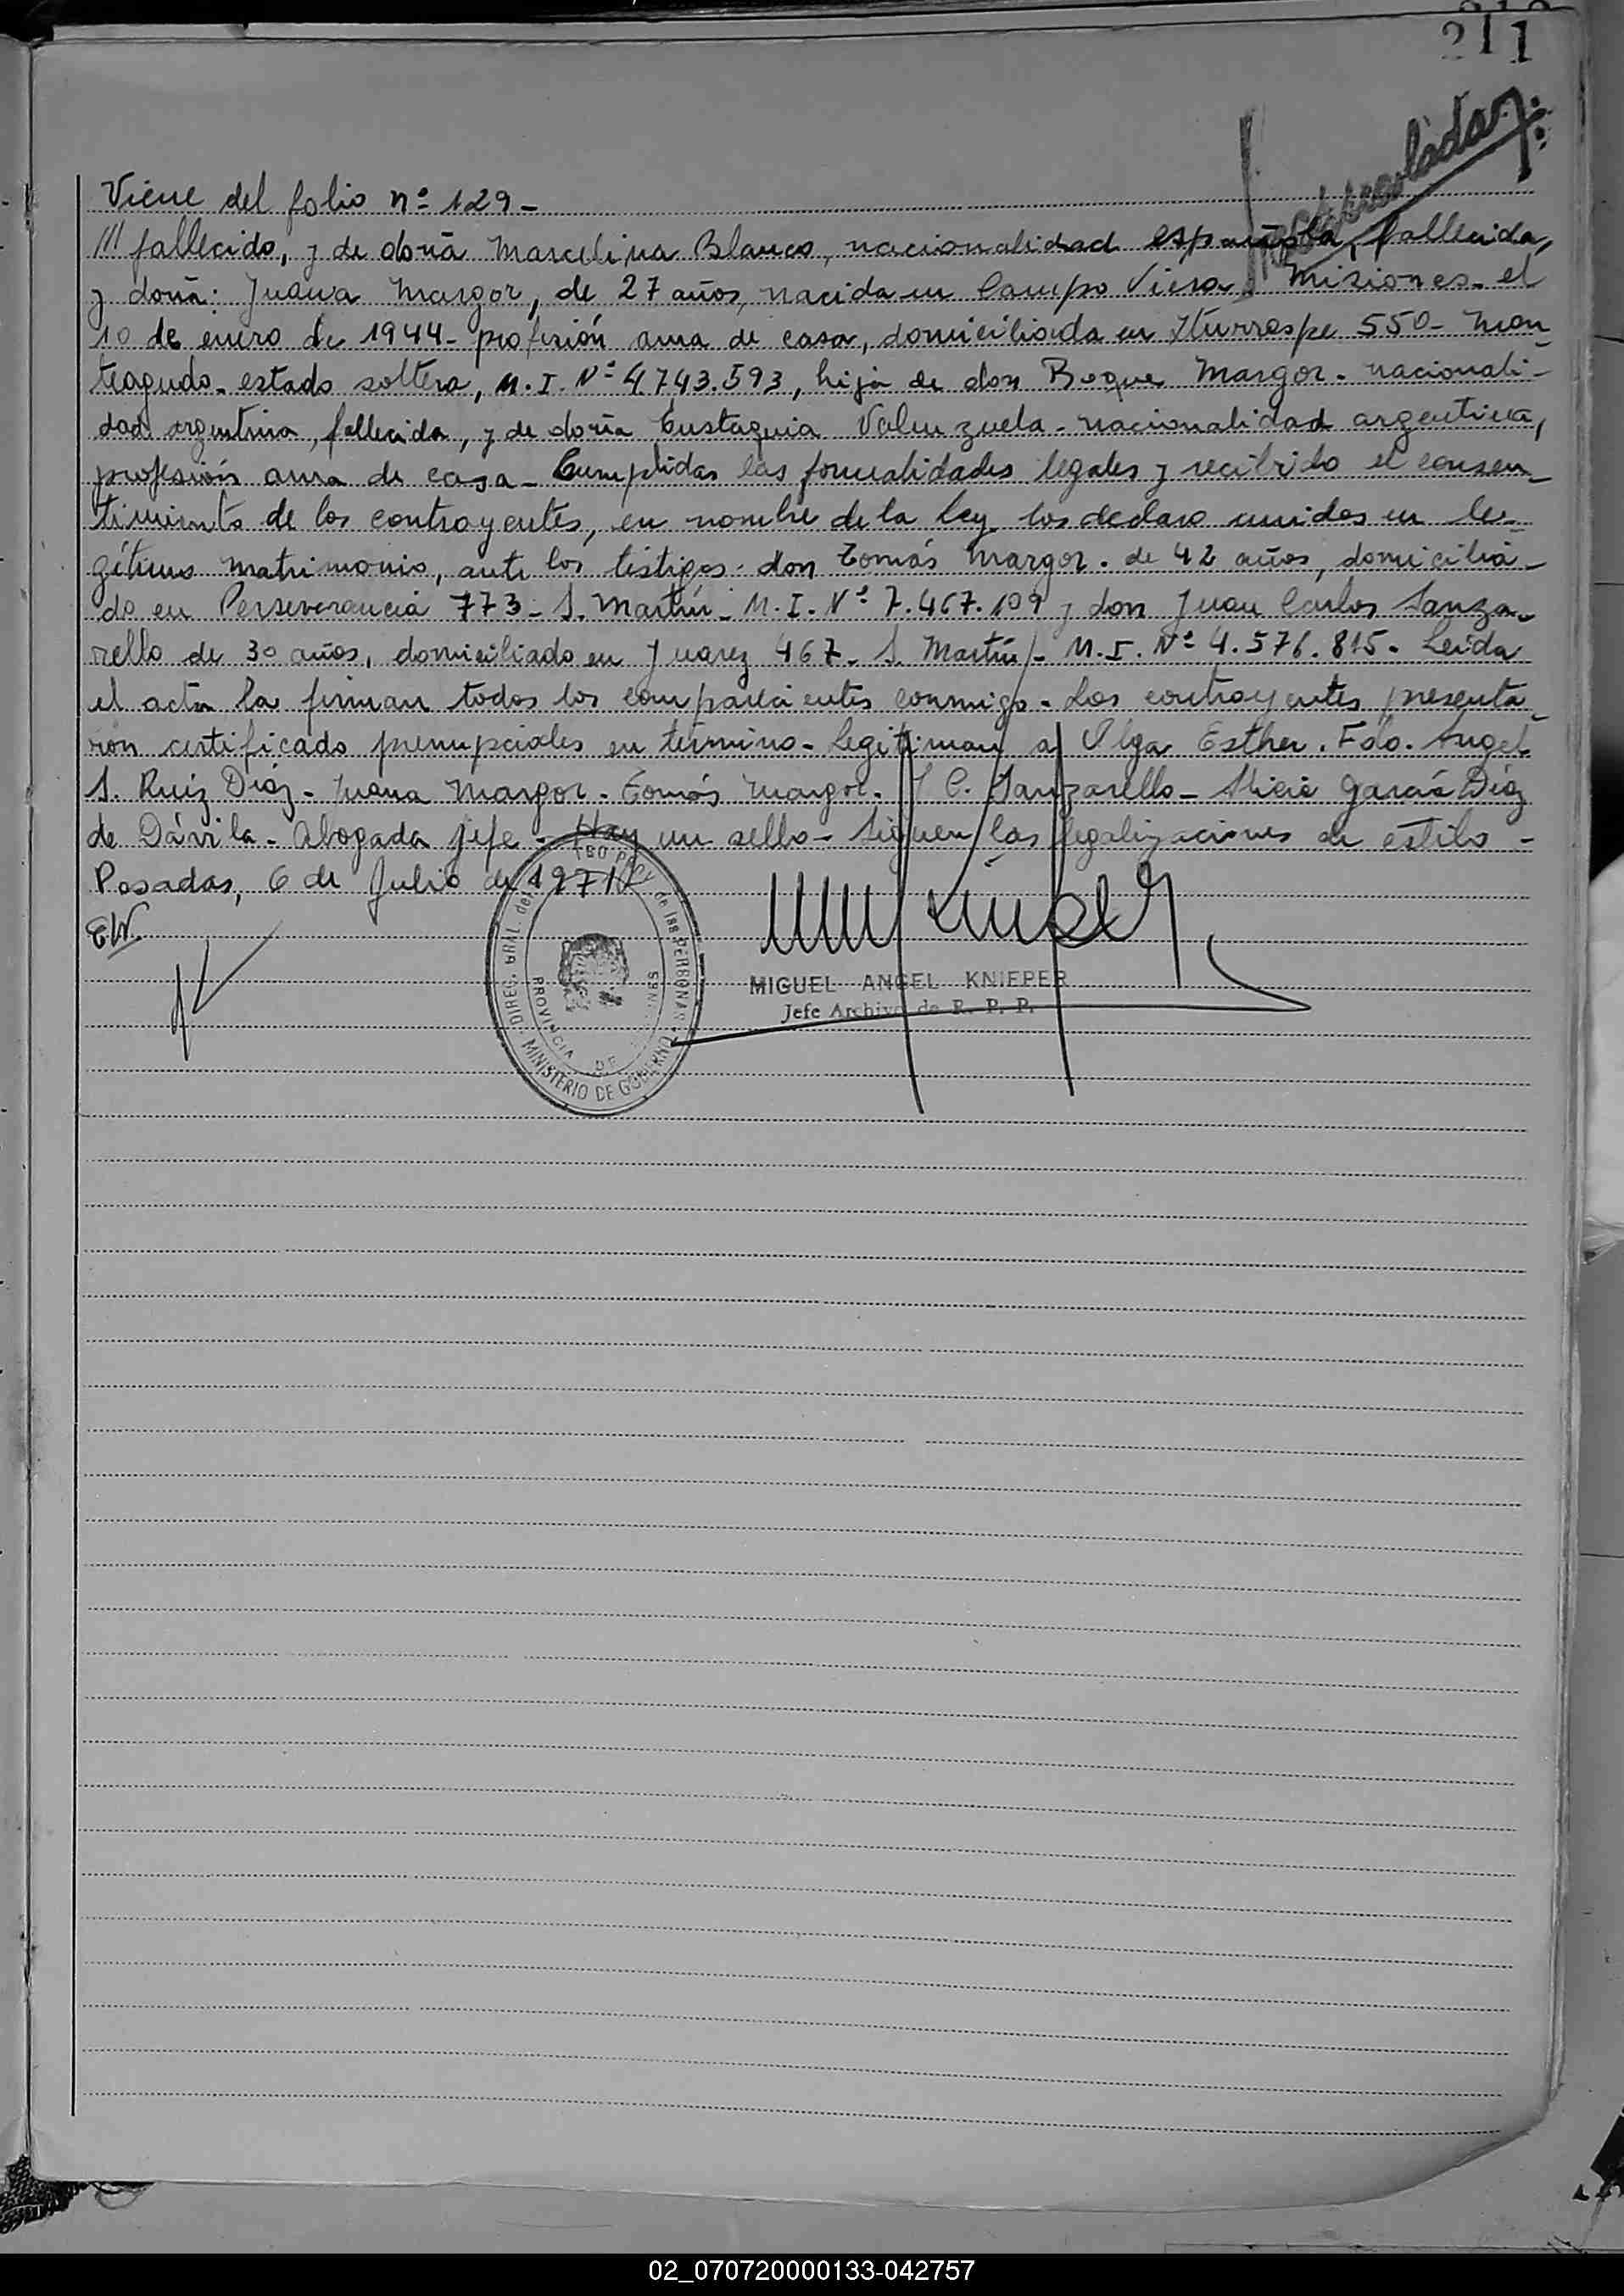 211
Viene del folio nº 129-
/// fallecido, y de doña Marcelina Blanco, nacionalidad española, fallecida,
y doña: Juana Margor, de 27 años, nacida en Campo Viera Misiones. el
10 de enero de 1944- profesión ama de casa, domiciliada en Iturraspe 550- Mon
teagudo. estado soltera, M.I. Nº 4.743.593, hija de don Roque Margor. nacionali-
dad argentina, fallecida, y de doña Eustaquia Valenzuela. nacionalidad argentina,
profesión ama de casa- Cumplidas las formalidades legales y recibido el consen-
timiento de los contrayentes, en nombre de la Ley los declaro unidos en le-
gítimo matrimonio, ante los testigos: don Tomás Margor. de 42 años, domicilia-
do en Perseverancia 773- S. Martín- M.I. Nº 7.467.109 y don Juan Carlos Sanza-
rello de 30 años, domiciliado en Juarez 467- S. Martín/- M.I. Nº 4.576.815- Leída
el acta la firman todos los comparecientes conmigo. Los contrayentes presenta-
ron certificado prenupciales en término- Legitiman a Olga Esther. Fdo. Angel
S. Ruiz Díaz- Juana Margor- Tomás Margor- J C. Sanzarello- Alicia García Díaz
de Dávila- Abogada jefe- Hay un sello- Siguen las legalizaciones de estilo-
Posadas, 6 de Julio de 1971
EW
MIGUEL ANGEL KNIEPER
Jefe Archivo de R. P. P.
DIREC. GRAL. del de las PERSONAS
PROVINCIA DE MISIONES
MINISTERIO DE GOBIERNO
02_070720000133-042757